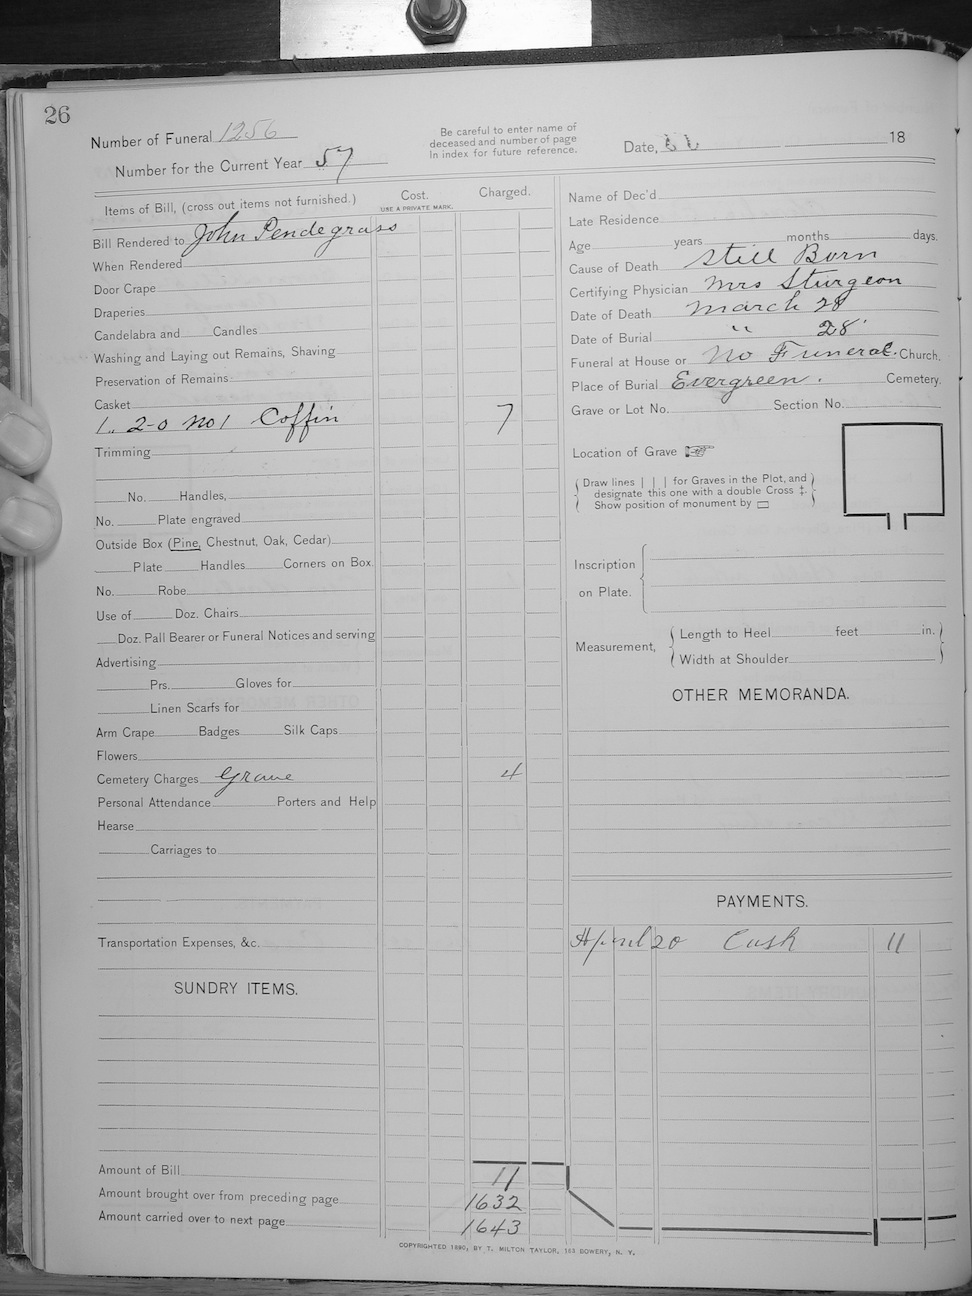 26
Number of Funeral 1256
Number for the Current Year 57
Be careful to enter name of
deceased and number of page
In index for future reference.
Date, 18
Items of Bill, (cross out items not furnished.)
Cost.
USE A PRIVATE MARK.
Charged.
Bill Rendered to John Pendegrass
When Rendered
Door Crape
Draperies
Candelabra and Candles
Washing and Laying out Remains, Shaving
Preservation of Remains
Casket
1 2-0 No 1 Coffin 7
Trimming
No. Handles,
No. Plate engraved
Outside Box (Pine, Chestnut, Oak, Cedar)
Plate Handles Corners on Box.
No. Robe
Use of Doz. Chairs
Doz. Pall Bearer or Funeral Notices and serving
Advertising
Prs. Gloves for
Linen Scarfs for
Arm Crape Badges Silk Caps
Flowers
Cemetery Charges Grave 4
Personal Attendance Porters and Help
Hearse
Carriages to
Transportation Expenses, &c.
SUNDRY ITEMS.
Amount of Bill 11
Amount brought over from preceding page 1632
Amount carried over to next page 1643
Name of Dec'd
Late Residence
Age years months days.
Cause of Death Still Born
Certifying Physician Mrs Sturgeon
Date of Death March 28
Date of Burial " 28
Funeral at House or No Funeral. Church.
Place of Burial Evergreen. Cemetery.
Grave or Lot No. Section No.
Location of Grave ☞
Draw lines | | | for Graves in the Plot, and
designate this one with a double Cross ‡.
Show position of monument by ▭
Inscription
on Plate.
Measurement,
Length to Heel feet in.
Width at Shoulder
OTHER MEMORANDA.
PAYMENTS.
April 20 Cash 11
COPYRIGHTED 1890, BY T. MILTON TAYLOR, 163 BOWERY, N. Y.